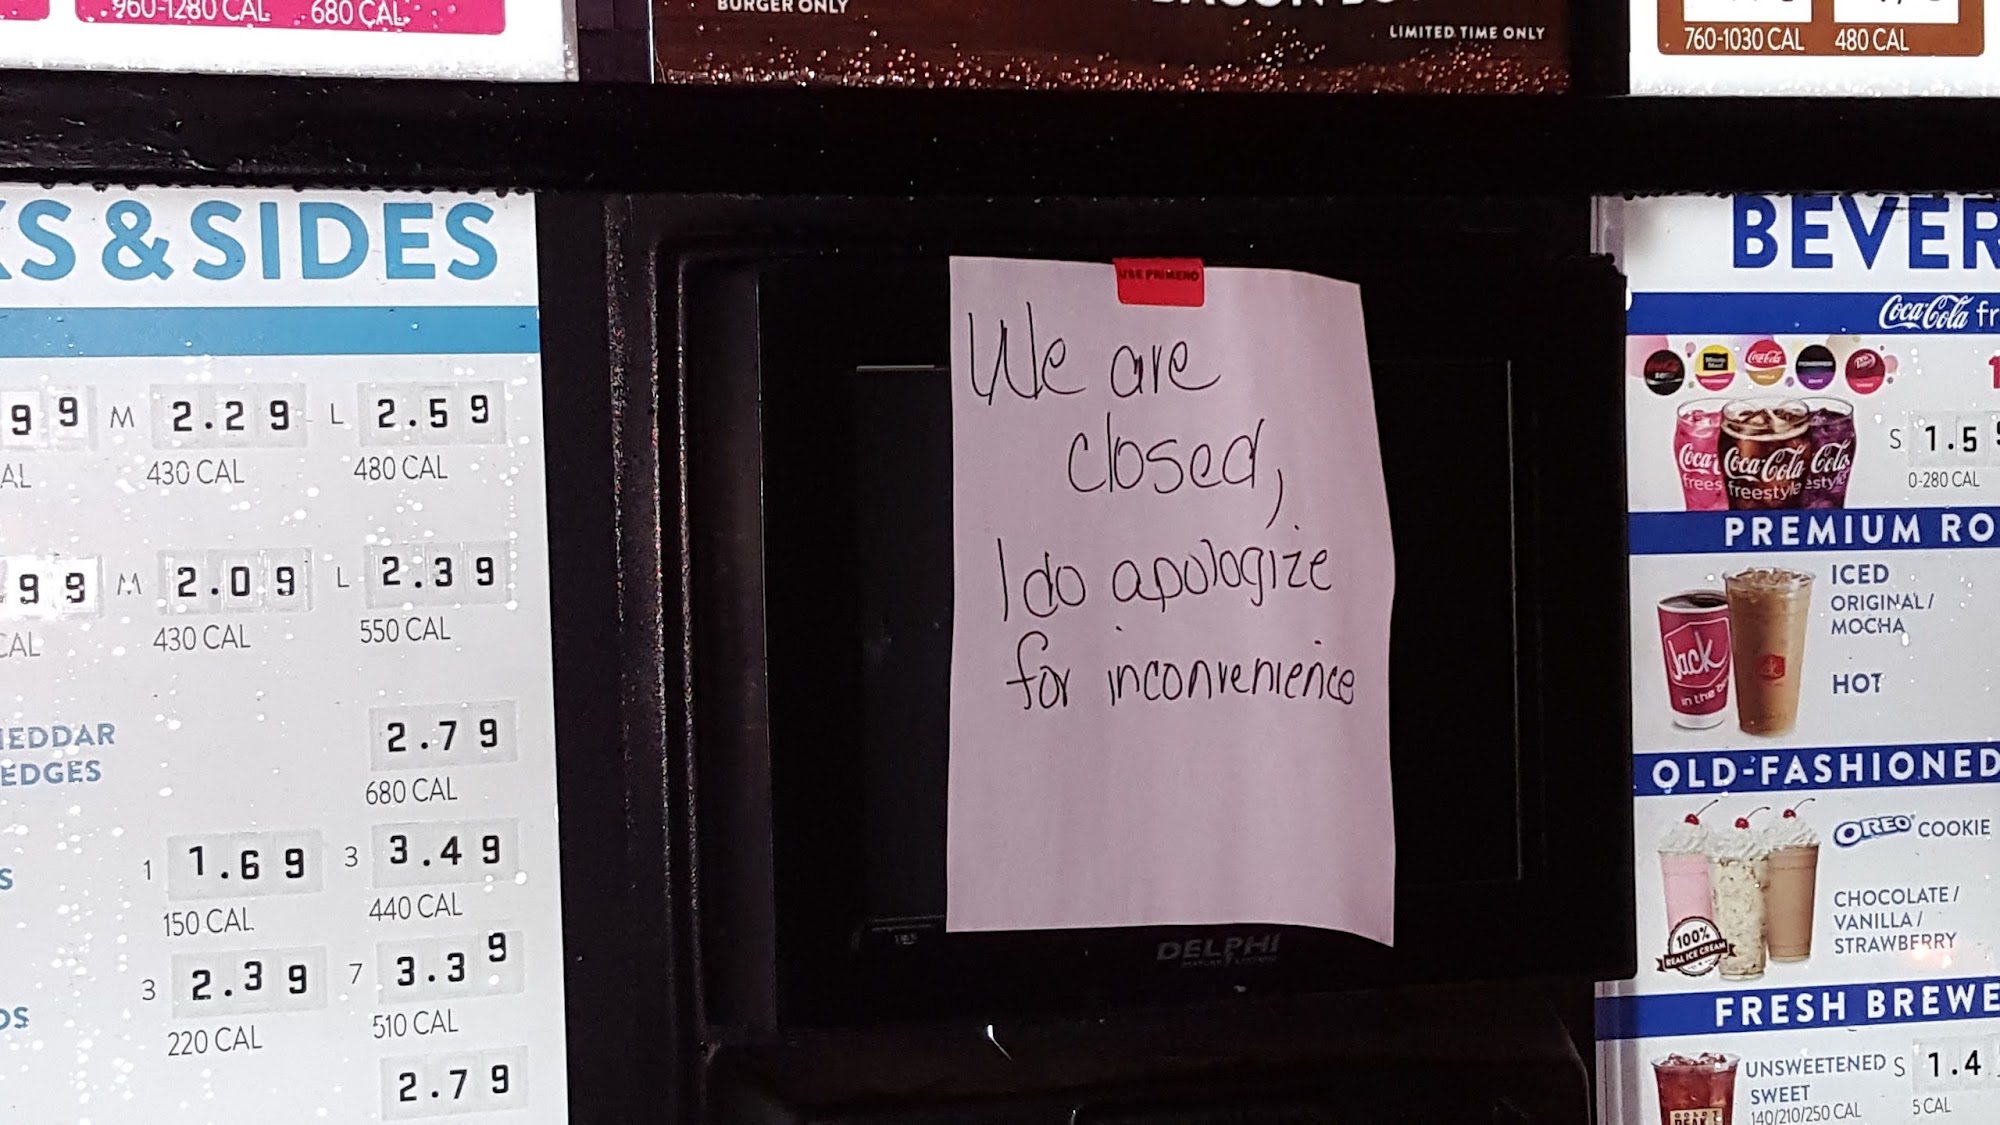 960-1280 CAL 680 CAL
BURGER ONLY
LIMITED TIME ONLY
760-1030 CAL 480 CAL
& SIDES
M 2.29 L 2.59
430 CAL 480 CAL
M 2.09 L 2.39
430 CAL 550 CAL
2.79
680 CAL
1 1.69 3 3.49
150 CAL 440 CAL
3 2.39 7 3.39
220 CAL 510 CAL
2.79
USE PRIMERO
We are
closed,
I do apologize
for inconvenience
DELPHI
BEVER
Coca-Cola fr
Coca-Cola
freestyle
S 1.5
0-280 CAL
PREMIUM RO
ICED
ORIGINAL/
MOCHA
HOT
Jack
in the b
OLD-FASHIONED
OREO COOKIE
CHOCOLATE/
VANILLA/
STRAWBERRY
100%
REAL ICE CREAM
FRESH BREWE
UNSWEETENED S 1.4
SWEET
140/210/250 CAL 5 CAL
GOLD
PEAK